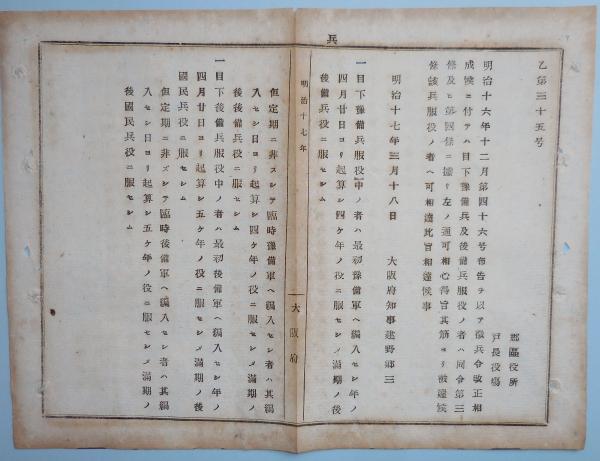 兵
乙第三十五号
郡區役所
戸長役場
明治十六年十二月第四十六号布告ヲ以テ徴兵令改正相
成候ニ付テハ目下豫備兵及後備兵服役ノ者ハ同令第三
條及ヒ第四條ニ據リ左ノ通可相心得旨其筋ヨリ被達候
條該兵服役ノ者ヘ可相達此旨相達候事
明治十七年三月十八日
大阪府知事建野郷三
一目下豫備兵服役中ノ者ハ最初豫備軍ヘ編入セシ年ノ
四月廿日ヨリ起算シ四ケ年ノ役ニ服セシメ滿期ノ後
後備兵役ニ服セシム
明治十七年
大阪府
但定期ニ非スシテ臨時豫備軍ヘ編入セシ者ハ其編
入セシ日ヨリ起算シ四ケ年ノ役ニ服セシメ滿期ノ
後後備兵役ニ服セシム
一目下後備兵服役中ノ者ハ最初後備軍ヘ編入セシ年ノ
四月廿日ヨリ起算シ五ケ年ノ役ニ服セシメ滿期ノ後
國民兵役ニ服セシム
但定期ニ非スシテ臨時後備軍ヘ編入セシ者ハ其編
入セシ日ヨリ起算シ五ケ年ノ役ニ服セシメ滿期ノ
後國民兵役ニ服セシム